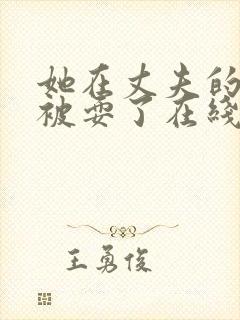 她在丈夫的
被耍了在线
王勇俊